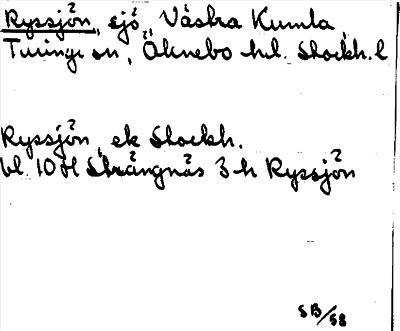 Ryssjön, sjö, Västra Kumla,
Turinge sn, Öknebo hd. Stockh. l
Ryssjön ek Stockh.
bl. 10 öl Strängnäs 3 h Ryssjön
SB/58